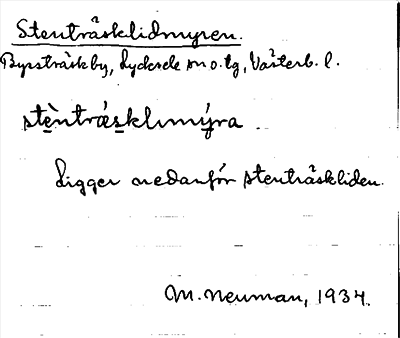 Stenträsklidmyren.
Byssträsk by, Lycksele sn o. tg, Västerb. l.
stènträ́sklımýra
Ligger nedanför Stenträskliden.
M. Neuman, 1934.